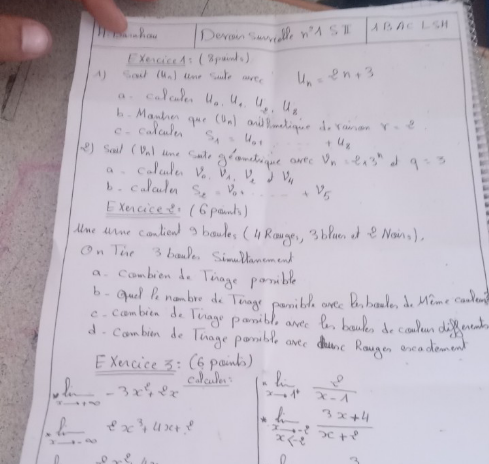 Devoir Surveillé n°1 S II
1 BAC LSH
Exercice 1: (8 points)
1) Soit (Un) une suite avec Un = 2n+3
a - calculer U0, U1, U2, U8
b - Montrer que (Un) arithmetique de raison r = 2
c - calculer S1 = U0+ ..... + U8
2) Soit (Vn) une suite géometrique avec Vn = 2×3^n et q = 3
a - calculer V0, V1, V2 et V4
b - calculer S2 = V0+ ..... + V5
Exercice 2: (6 points)
Une urne contient 9 boules (4 Rouges, 3 blues et 2 Noirs).
On Tire 3 boules Simultanement
a - combien de Tirage possible
b - quel le nombre de Tirage possible avec les boules de Même couleur
c - combien de Tirage possible avec les boules de couleur différents
d - combien de Tirage possible avec Rouges exactement
Exercice 3: (6 points)
calculer:
lim x→+∞ -3x²+2x
lim x→1+ 2/(x-1)
lim x→-∞ 2x³+4x+2
lim x→-2 x<-2 (3x+4)/(x+2)